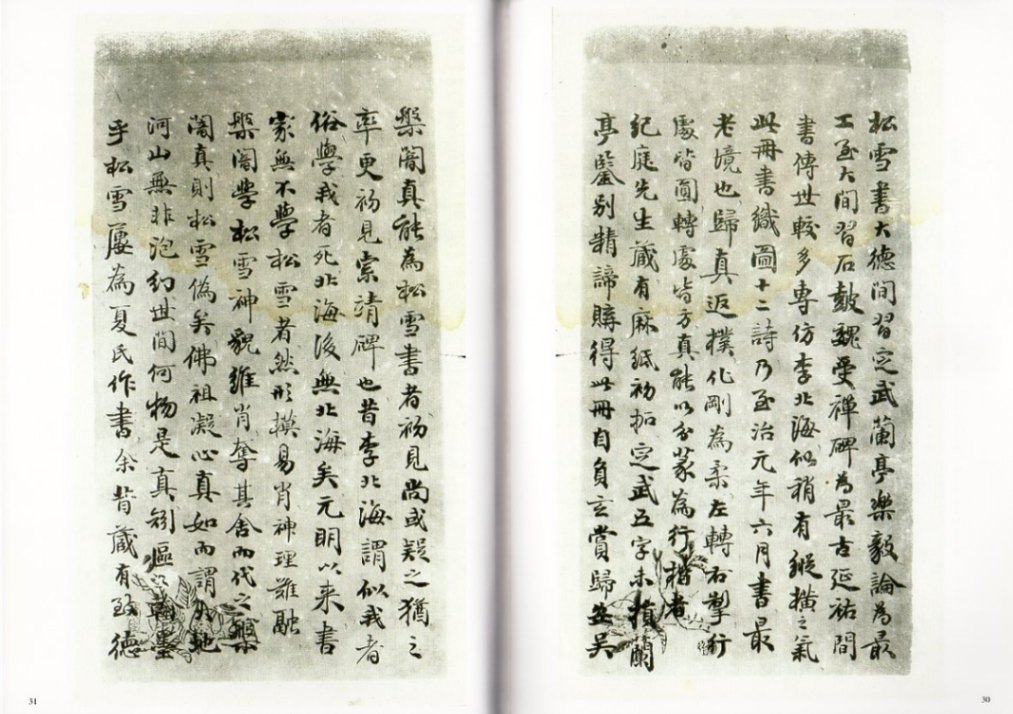 松雪書大德間習定武蘭亭樂毅論為最
工至大間習石鼓魏受禪碑為最古延祐間
書傳世較多專仿李北海似稍有縱橫之氣
此冊書織圖十二詩乃至治元年六月書最
老境也歸真返撲化剛為柔左轉右掣行
處皆圓轉處皆方真能以分篆為行楷者
紀庭先生藏有麻紙初拓定武五字未損蘭
亭鑒別精諦購得此冊自負玄賞歸並吳
30
槃闇真能為松雪書者初見尚或疑之猶之
率更初見索靖碑也昔李北海謂似我者
俗學我者死北海後無北海矣元明以來書
家無不學松雪者然形摸易肖神理難融
槃闇學松雪神貌維肖奪其舍而代之槃
闇真則松雪偽矣佛祖凝心真如而謂大地
河山無非泡幻世間何物是真翰墨
乎松雪屢為夏氏作書余昔藏有致德
31